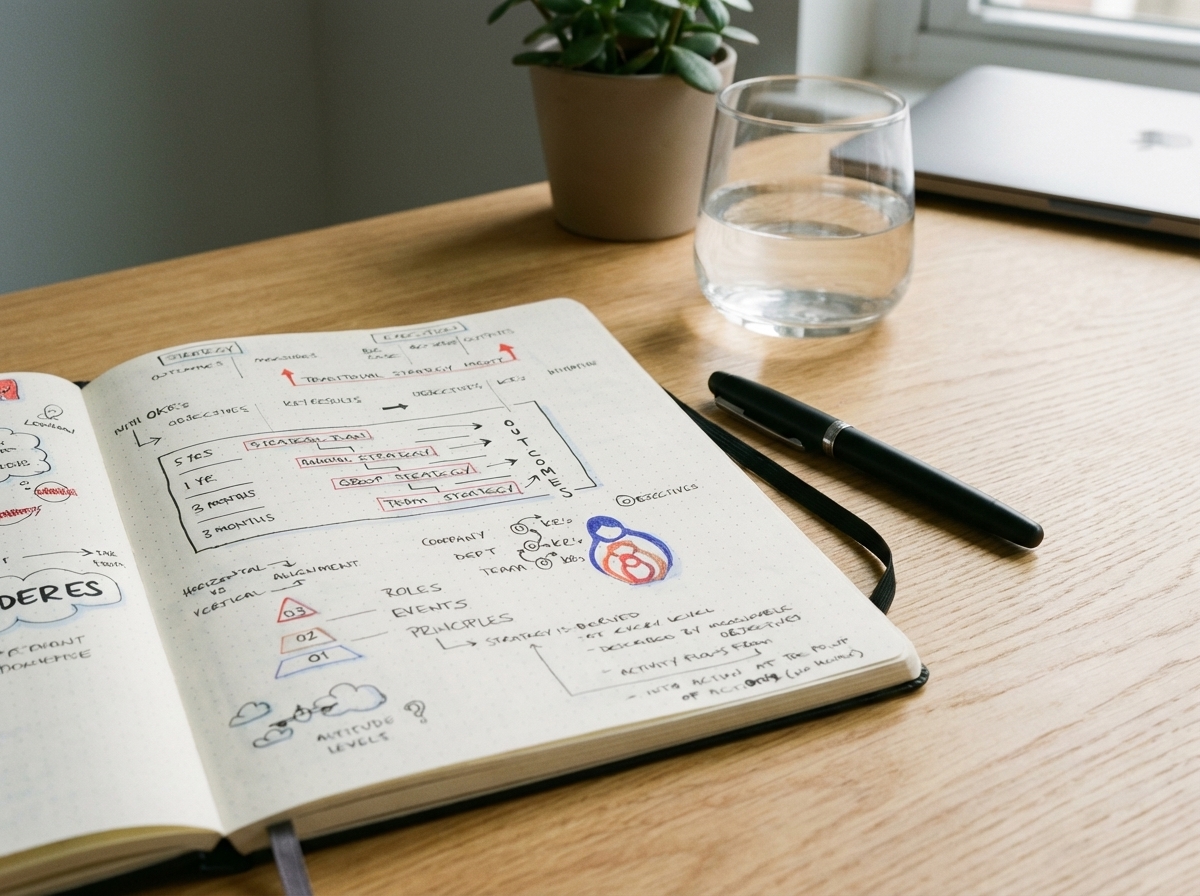 LONDON
DERES
STRATEGY
EXECUTION
OUTCOMES
MEASURES
OUTPUTS
TRADITIONAL STRATEGY
WITH OKR'S
OBJECTIVES
KEY RESULTS
OBJECTIVES
KR'S
5 YRS
1 YR
3 MONTHS
3 MONTHS
STRATEGIC PLAN
ANNUAL STRATEGY
GROUP STRATEGY
TEAM STRATEGY
OUTCOMES
OBJECTIVES
COMPANY
KR's
DEPT
KR's
TEAM
KR's
HORIZONTAL
VS
VERTICAL
ALIGNMENT
03
02
01
ROLES
EVENTS
PRINCIPLES
STRATEGY IS DERIVED
AT EVERY LEVEL
- DESCRIBED BY MEASURABLE
OBJECTIVES
- ACTIVITY FLOWS FROM
- INTO ACTION AT THE POINT
OF
ALTITUDE
LEVELS
?